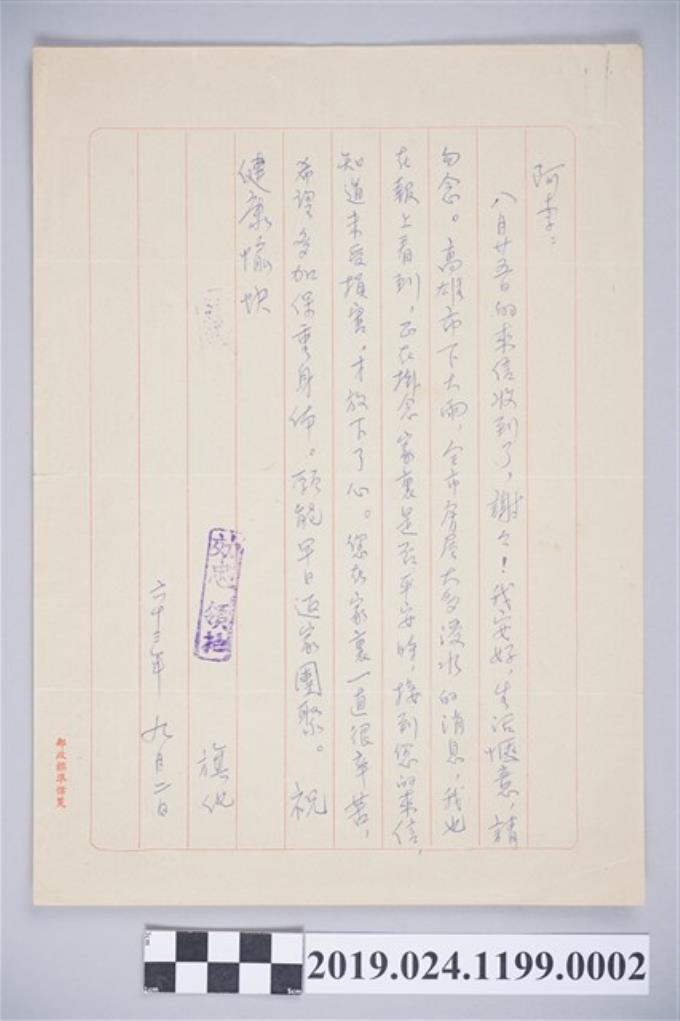 阿李：
八月廿五日的來信收到了，謝々！我安好，生活愜意，請
勿念。高雄市下大雨，全市房屋大多浸水的消息，我也
在報上看到，正在掛念家裏是否平安時，接到您的來信，
知道未受損害，才放下了心。您在家裏一直很辛苦，
希望多加保重身体。願能早日返家團聚。 祝
健康愉快
旗化
六十三年 九月二日
郵政標準信箋
2019.024.1199.0002